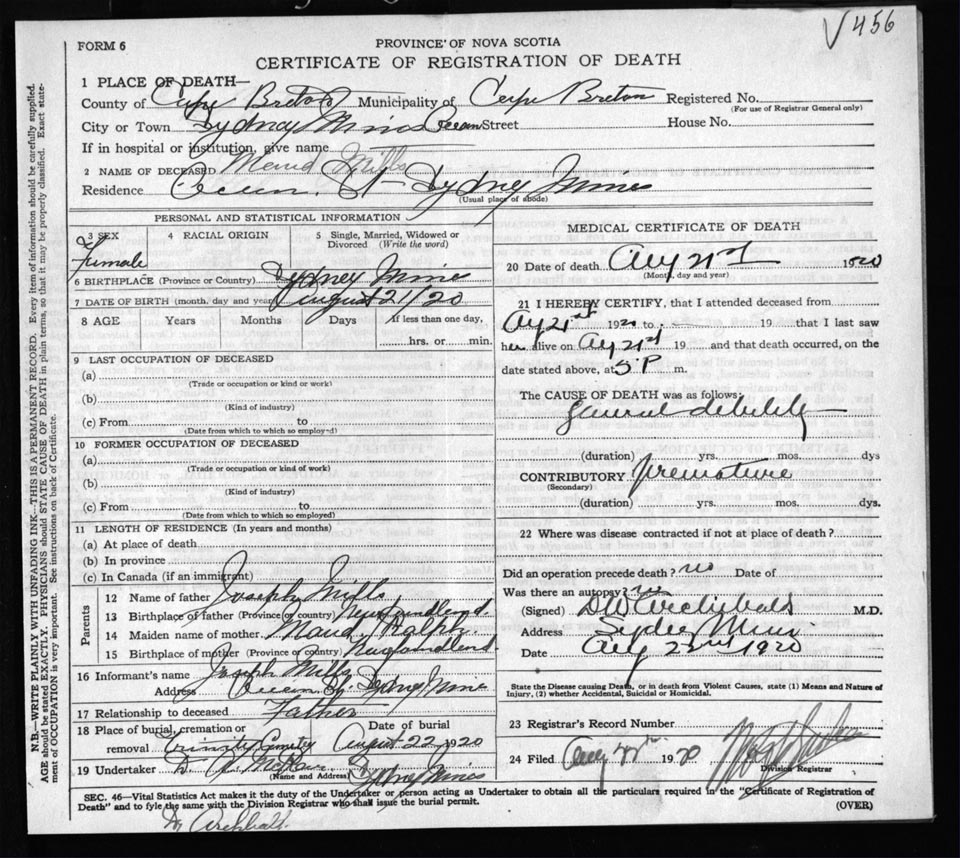 V 456
FORM 6
PROVINCE OF NOVA SCOTIA
CERTIFICATE OF REGISTRATION OF DEATH
1 PLACE OF DEATH—
County of Cape Breton Municipality of Cape Breton Registered No.
(For use of Registrar General only)
City or Town Sydney Mines Ocean Street House No.
If in hospital or institution, give name
2 NAME OF DECEASED Maud Mills
Residence Ocean St Sydney Mines
(Usual place of abode)
PERSONAL AND STATISTICAL INFORMATION
3 SEX 4 RACIAL ORIGIN 5 Single, Married, Widowed or Divorced (Write the word)
Female
6 BIRTHPLACE (Province or Country) Sydney Mines
7 DATE OF BIRTH (month, day and year) August 21/20
8 AGE Years Months Days If less than one day,
hrs. or min.
9 LAST OCCUPATION OF DECEASED
(a)
(Trade or occupation or kind or work)
(b)
(Kind of industry)
(c) From to
(Date from which to which so employed)
10 FORMER OCCUPATION OF DECEASED
(a)
(Trade or occupation or kind of work)
(b)
(Kind of industry)
(c) From to
(Date from which to which so employed)
11 LENGTH OF RESIDENCE (In years and months)
(a) At place of death
(b) In province
(c) In Canada (if an immigrant)
Parents
12 Name of father Joseph Mills
13 Birthplace of father (Province or country) Newfoundland
14 Maiden name of mother Maud Ralph
15 Birthplace of mother (Province or country) Newfoundland
16 Informant's name Joseph Mills
Address Ocean St Sydney Mines
17 Relationship to deceased Father
18 Place of burial, cremation or removal Trinity Cemetry Date of burial August 22 1920
19 Undertaker D. A.
(Name and Address) Sydney Mines
MEDICAL CERTIFICATE OF DEATH
20 Date of death Aug 21st 1920
(Month, day and year)
21 I HEREBY CERTIFY, that I attended deceased from
Aug 21st 1920 to 19 that I last saw
her alive on Aug 21st 19 and that death occurred, on the
date stated above, at 5 P m.
The CAUSE OF DEATH was as follows:
General debility
(duration) yrs. mos. dys
CONTRIBUTORY premature
(Secondary)
(duration) yrs. mos. dys.
22 Where was disease contracted if not at place of death?
Did an operation precede death? no Date of
Was there an autopsy? no
(Signed) DW Archibald M.D.
Address Sydney Mines
Date Aug 22nd 1920
State the Disease causing Death, or in death from Violent Causes, state (1) Means and Nature of
Injury, (2) whether Accidental, Suicidal or Homicidal.
23 Registrar's Record Number
24 Filed Aug 1920
Division Registrar
SEC. 46—Vital Statistics Act makes it the duty of the Undertaker or person acting as Undertaker to obtain all the particulars required in the "Certificate of Registration of
Death" and to fyle the same with the Division Registrar who shall issue the burial permit. (OVER)
Dr Archibald.
N.B.—WRITE PLAINLY WITH UNFADING INK—THIS IS A PERMANENT RECORD. Every item of information should be carefully supplied.
AGE should be stated EXACTLY. PHYSICIANS should STATE CAUSE OF DEATH in plain terms, so that it may be properly classified. Exact state-
ment of OCCUPATION is very important. See instructions on back of Certificate.